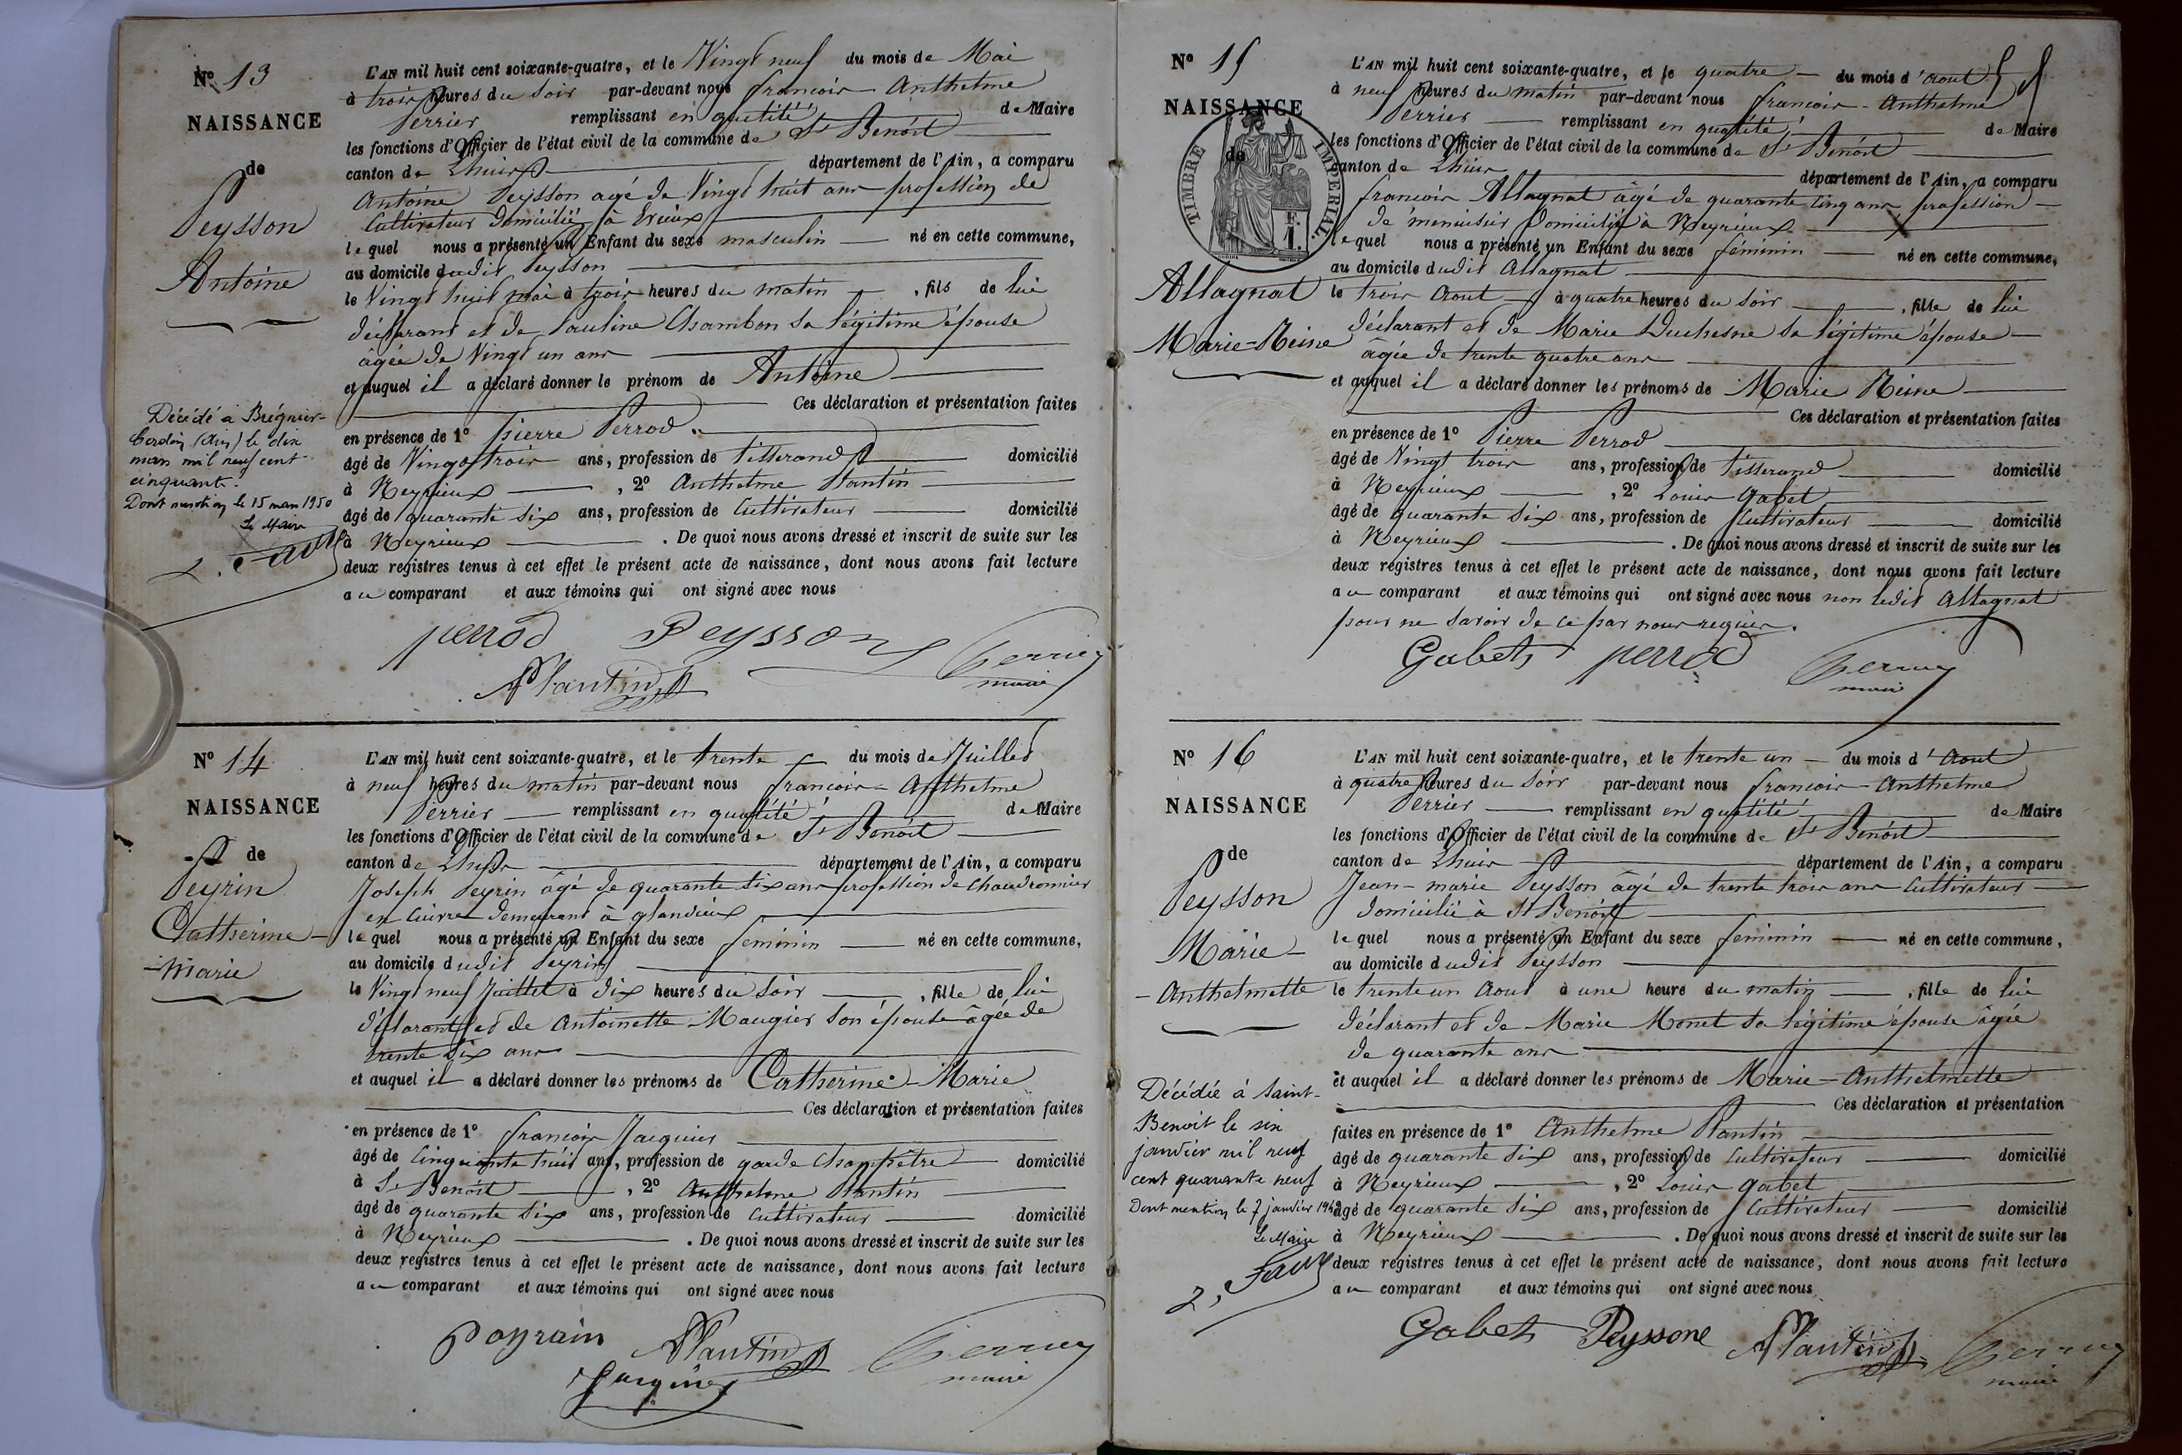 Nº 13
NAISSANCE
de
Peysson
Antoine
L'AN mil huit cent soixante-quatre, et le Vingt neuf du mois de Mai
à trois heures du Soir par-devant nous françois Anthelme
Perrier remplissant en qualité de Maire
les fonctions d'Officier de l'état civil de la commune de St Benoit
canton de Lhuis département de l'Ain, a comparu
Antoine Peysson agé de Vingt huit ans profession de
Cultivateur domicilié à Evieux
lequel nous a présenté un Enfant du sexe masculin né en cette commune,
au domicile dudit Peysson
le Vingt huit mai à trois heures du matin, fils de lui
déclarant et de Pauline Chambon sa légitime épouse
âgée de Vingt un ans
et auquel il a déclaré donner le prénom de Antoine
Ces déclaration et présentation faites
en présence de 1º Pierre Perrod
âgé de Vingt trois ans, profession de tisserand domicilié
à Neyrieux, 2º Anthelme Plantin
âgé de quarante six ans, profession de Cultivateur domicilié
à Neyrieux. De quoi nous avons dressé et inscrit de suite sur les
deux registres tenus à cet effet le présent acte de naissance, dont nous avons fait lecture
au comparant et aux témoins qui ont signé avec nous
perrod Peysson Perrier
maire
APlantin
Décédé à Brégnier-
Cordon (Ain) le dix
mars mil neuf cent
cinquante.
Dont mention le 15 mars 1950
Le Maire
Nº 14
NAISSANCE
de
Peyrin
Catherine-
-marie
L'AN mil huit cent soixante-quatre, et le trente du mois de Juillet
à neuf heures du matin par-devant nous françois Anthelme
Perrier remplissant en qualité de Maire
les fonctions d'Officier de l'état civil de la commune de St Benoit
canton de Lhuis département de l'Ain, a comparu
Joseph Peyrin âgé de quarante six ans profession de Chaudronnier
en Cuivre demeurant à glandieux
lequel nous a présenté un Enfant du sexe feminin né en cette commune,
au domicile dudit Peyrin
le Vingt neuf Juillet à dix heures du Soir, fille de lui
déclarant et de Antoinette Maugier son épouse âgée de
trente six ans
et auquel il a déclaré donner les prénoms de Catherine-Marie
Ces déclaration et présentation faites
en présence de 1º françois Jacquier
âgé de Cinquante huit ans, profession de garde Champêtre domicilié
à St Benoit, 2º Anthelme Plantin
âgé de quarante six ans, profession de Cultivateur domicilié
à Neyrieux. De quoi nous avons dressé et inscrit de suite sur les
deux registres tenus à cet effet le présent acte de naissance, dont nous avons fait lecture
au comparant et aux témoins qui ont signé avec nous
poyrain APlantin Perrier
maire
Nº 15
NAISSANCE
de
TIMBRE IMPERIAL
Allagnat
Marie-Reine
L'AN mil huit cent soixante-quatre, et le quatre du mois d'Aout
à neuf heures du matin par-devant nous françois-Anthelme
Perrier remplissant en qualité de Maire
les fonctions d'Officier de l'état civil de la commune de St Benoit
canton de Lhuis département de l'Ain, a comparu
françois Allagnat âgé de quarante cinq ans profession
de menuisier domicilié à Neyrieux
lequel nous a présenté un Enfant du sexe féminin né en cette commune,
au domicile dudit Allagnat
le trois Aout à quatre heures du Soir, fille de lui
déclarant et de Marie Duchesne sa légitime épouse
âgée de trente quatre ans
et auquel il a déclaré donner les prénoms de Marie Reine
Ces déclaration et présentation faites
en présence de 1º Pierre Perrod
âgé de Vingt trois ans, profession de tisserand domicilié
à Neyrieux, 2º Louis Gabet
âgé de quarante six ans, profession de Cultivateur domicilié
à Neyrieux. De quoi nous avons dressé et inscrit de suite sur les
deux registres tenus à cet effet le présent acte de naissance, dont nous avons fait lecture
au comparant et aux témoins qui ont signé avec nous non ledit Allagnat
pour ne savoir de ce par nous requis.
Gabet perrod Perrier
maire
Nº 16
NAISSANCE
de
Peysson
Marie-
-Anthelmette
L'AN mil huit cent soixante-quatre, et le trente un du mois d'Aout
à quatre heures du Soir par-devant nous françois-Anthelme
Perrier remplissant en qualité de Maire
les fonctions d'Officier de l'état civil de la commune de St Benoit
canton de Lhuis département de l'Ain, a comparu
Jean-marie Peysson âgé de trente trois ans Cultivateur
domicilié à St Benoit
lequel nous a présenté un Enfant du sexe feminin né en cette commune,
au domicile dudit Peysson
le trente un Aout à une heure du matin, fille de lui
déclarant et de Marie Monet sa légitime épouse âgée
de quarante ans
et auquel il a déclaré donner les prénoms de Marie-Anthelmette
Ces déclaration et présentation
faites en présence de 1º Anthelme Plantin
âgé de quarante six ans, profession de Cultivateur domicilié
à Neyrieux, 2º Louis Gabet
âgé de quarante six ans, profession de Cultivateur domicilié
à Neyrieux. De quoi nous avons dressé et inscrit de suite sur les
deux registres tenus à cet effet le présent acte de naissance, dont nous avons fait lecture
au comparant et aux témoins qui ont signé avec nous
Gabet Peyssone APlantin Perrier
maire
Décédée à Saint-
Benoit le six
janvier mil neuf
cent quarante neuf
Dont mention le 7 janvier 1949
Le Maire